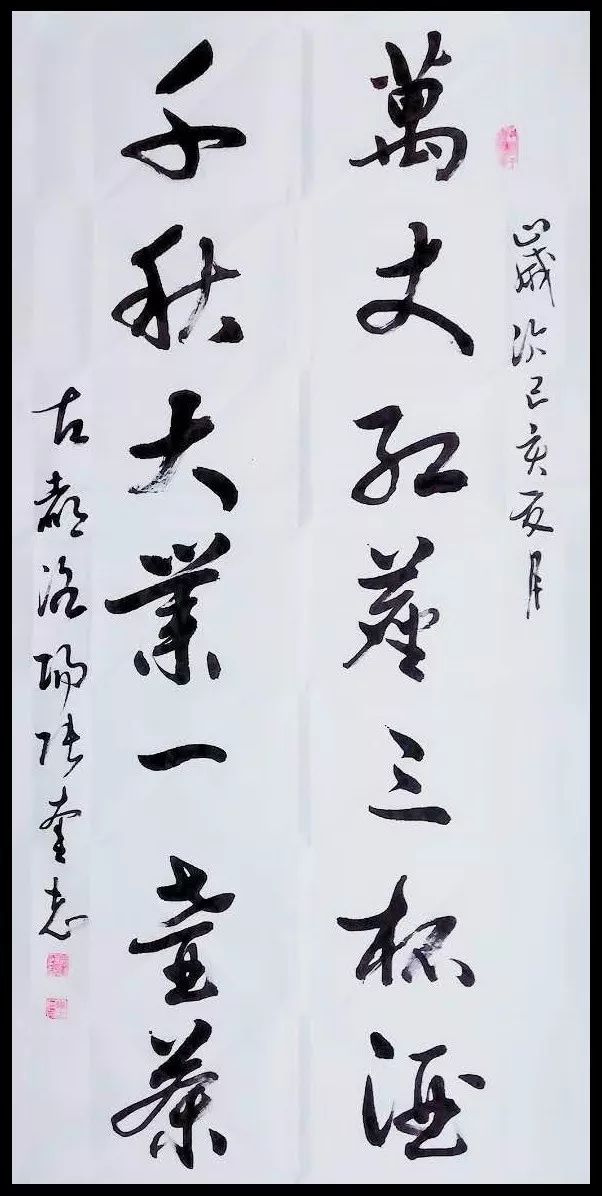 歲次己亥夏月
萬丈紅塵三杯酒
千秋大業一壺茶
古都洛陽張奎志